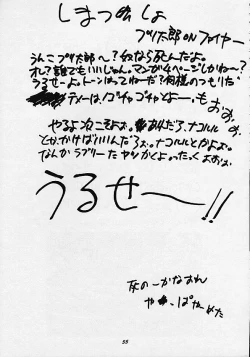 しまつ　しょ
ブリ太郎 ON ファイヤー
うんこブリ太郎へ？奴なら死んだよ。
オレ？誰でもいいじゃん。マンガが4ページしかねー？
うるせーよ。トーンはってねーだ？何様のつもりだ
ティーは！ゴチャゴチャとよー・もぉぉぉ
やるよ次こそよぉ。　んだろ、ナコルル
とかかけばいいんだろぉ。ナコルルとかよぉ。
なんかラブリーなヤツかくよ。ったくよぉぉ
うるせ〜!!
死のーかなぁ
や　っぱやーめた
55